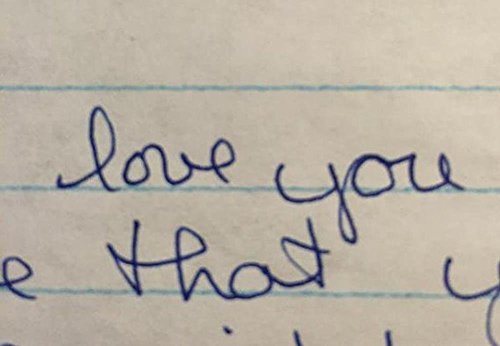 love you
e that y